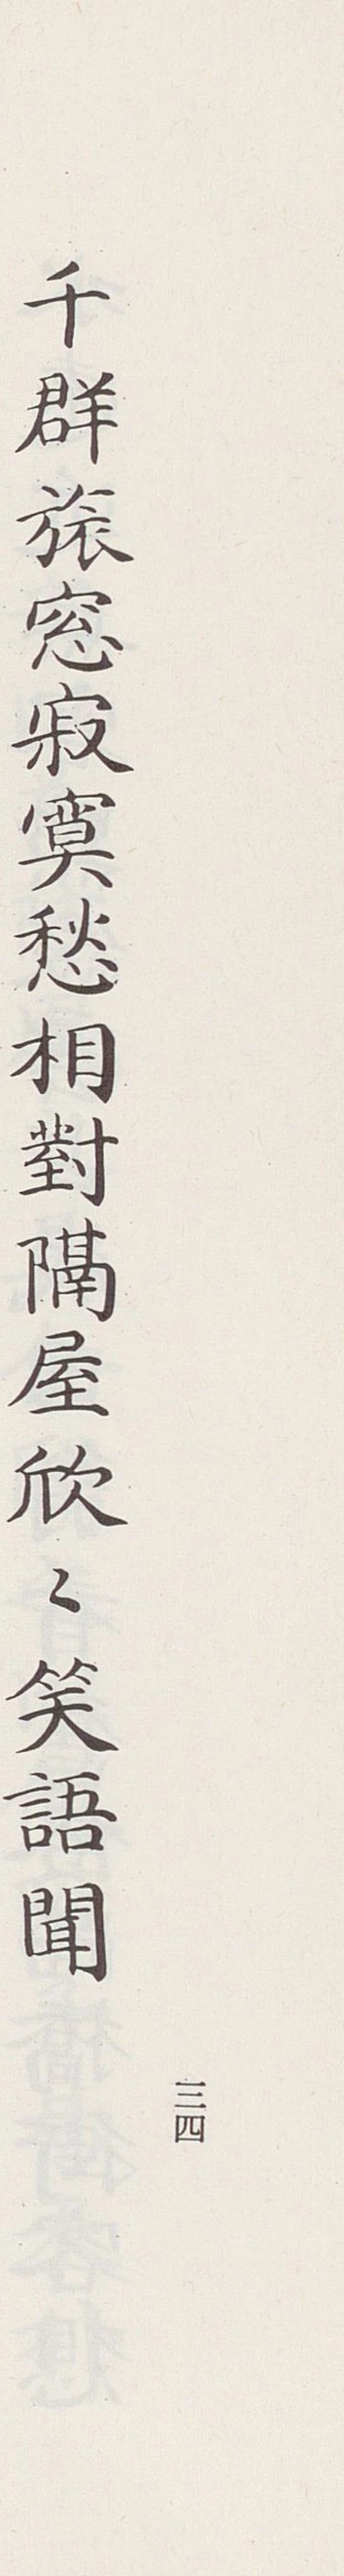 千群旅窓寂寞愁相對隔屋欣〻笑語聞
三四